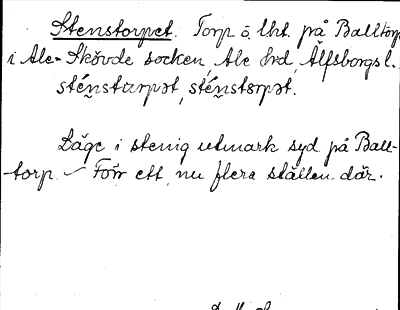 Stenstorpet. Torp o. lht. på Balltorp
i Ale-Skövde socken, Ale hd, Älfsborgs l.
sténsturpət, sténstɵrpət.
Läge i stenig utmark syd på Ball-
torp. – Förr ett, nu flera ställen där.